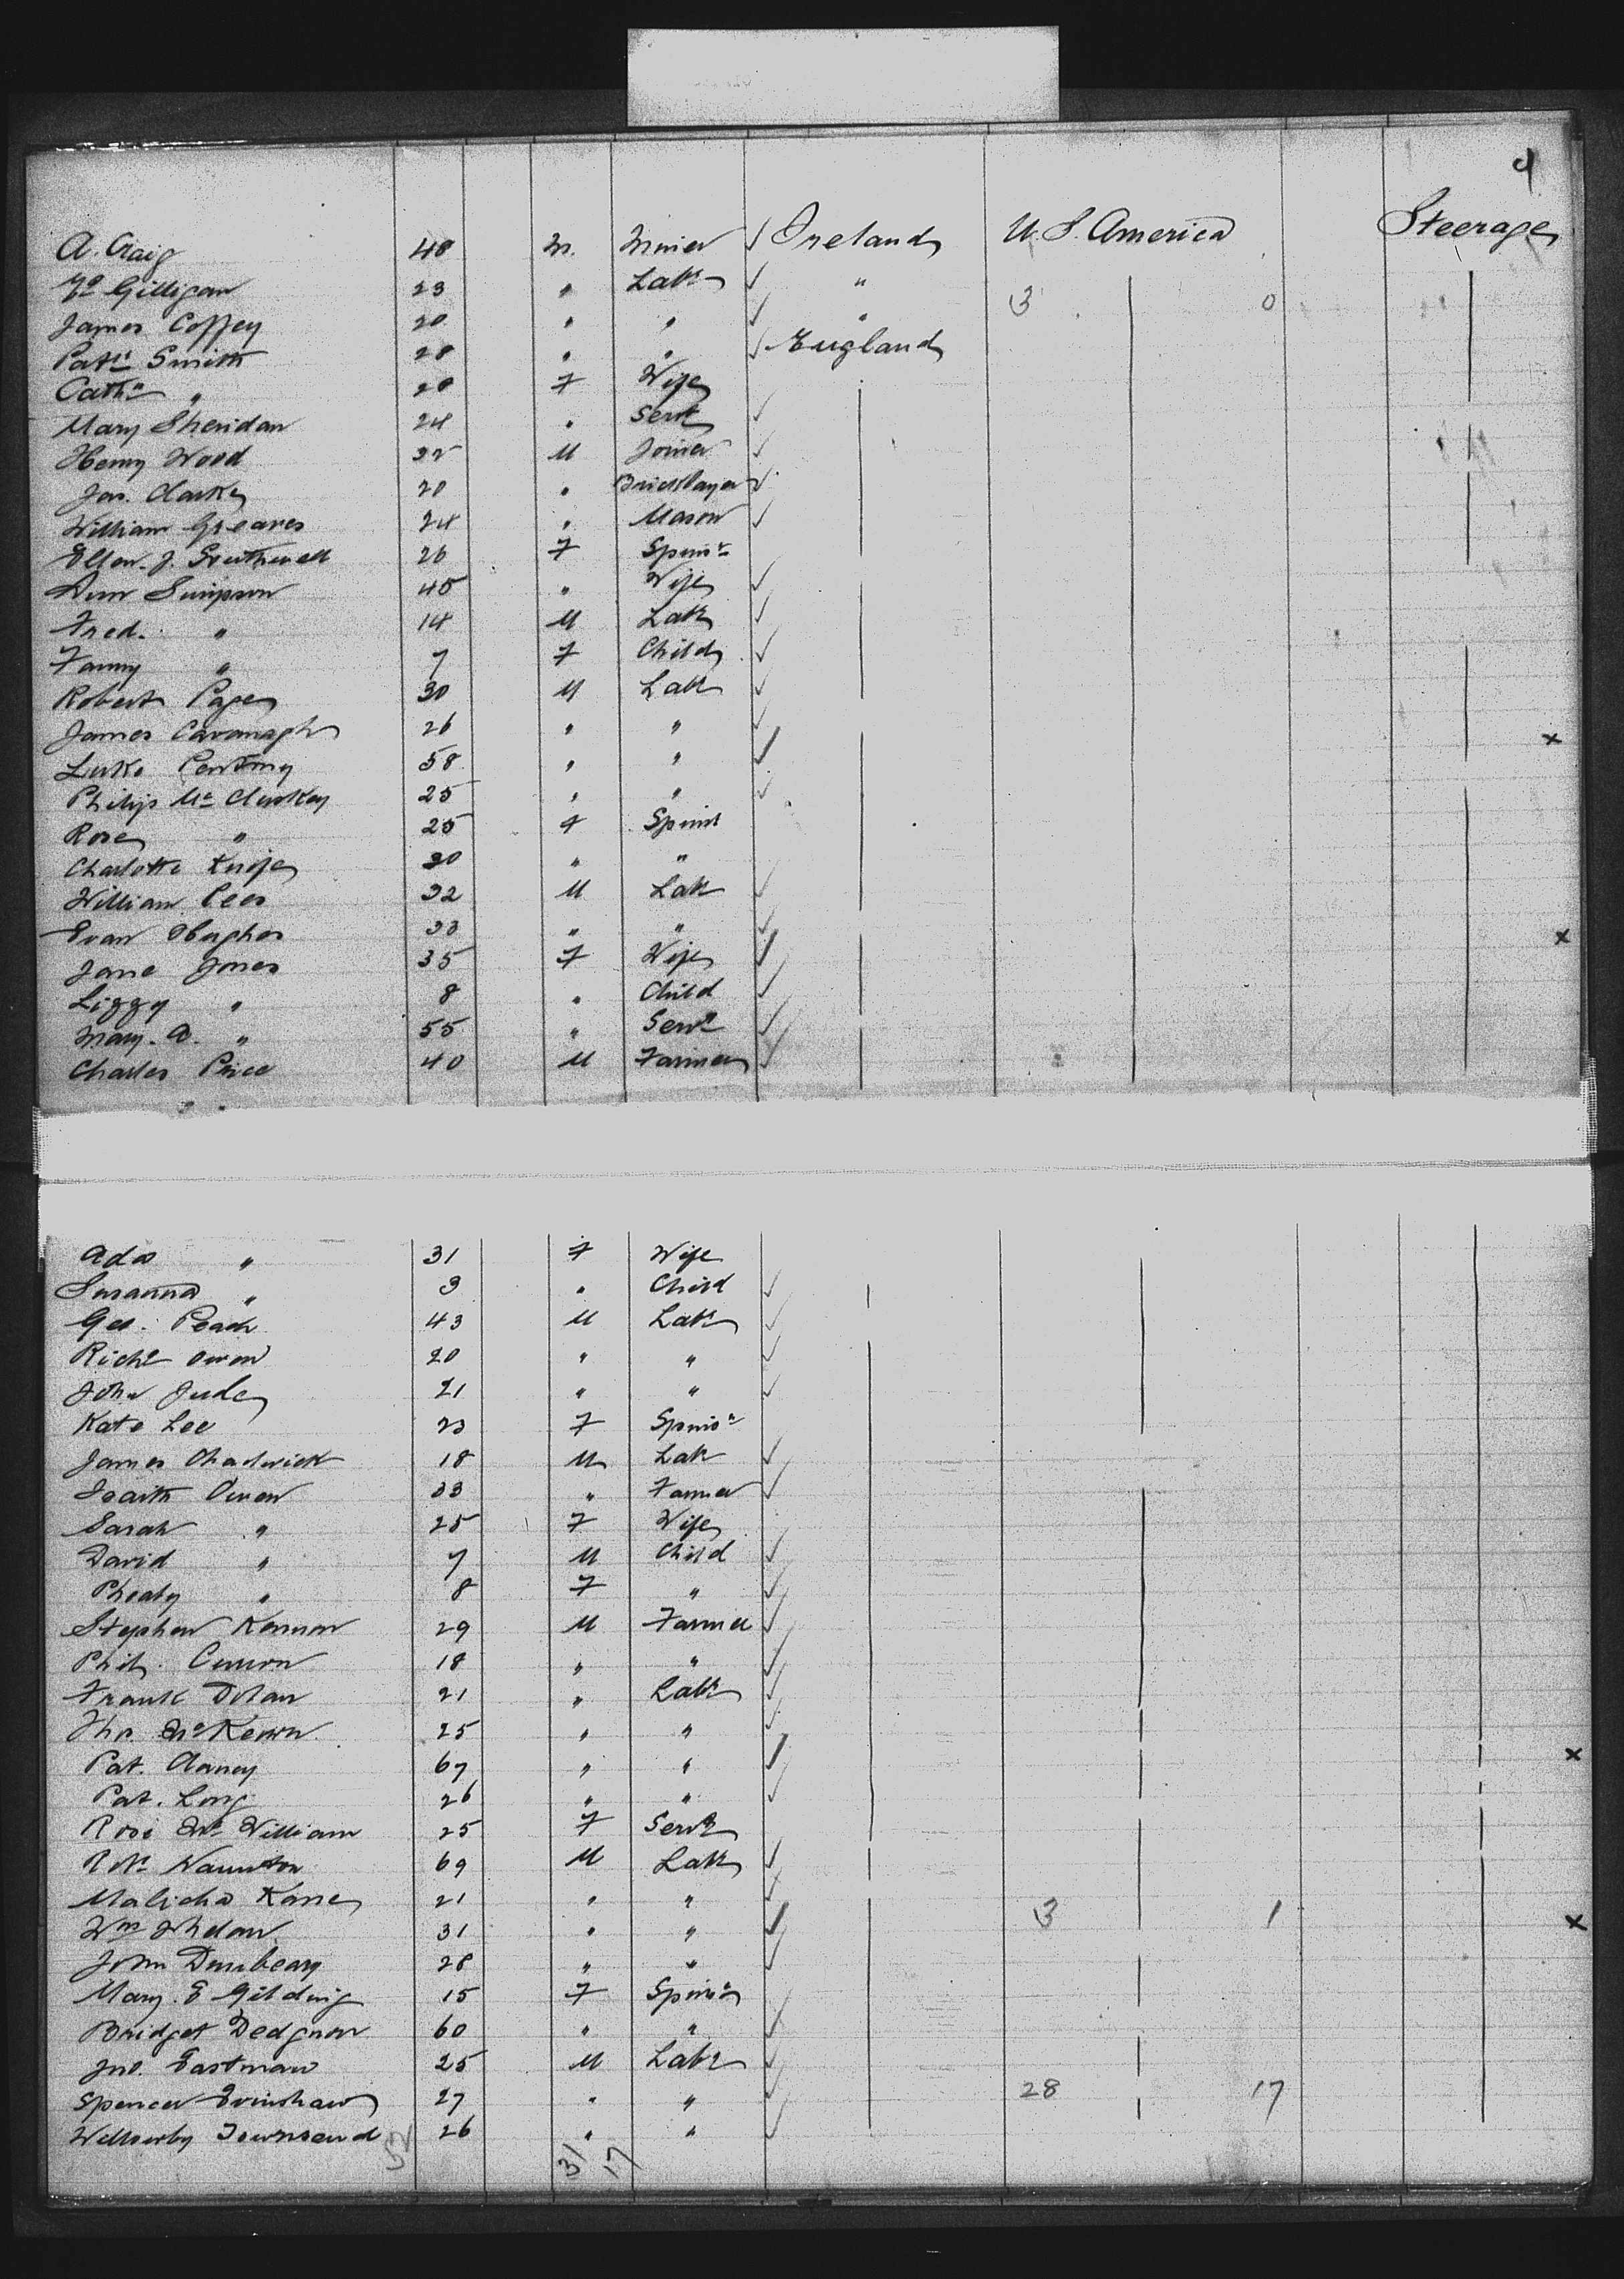 4
A. Craig 48 M. Miner ✓ Ireland U. S. America Steerage
Gilligan 23 " Labr ✓ " 3 0
James Coffey 20 " " ✓ "
Patk Smith 28 " " ✓ England
Cathn " 20 F Wife
Mary Sheridan 24 " Servt ✓
Henry Wood M Joiner ✓
Jas. Clarke 20 " Bricklayer ✓
William Greaves 24 " Mason ✓
Ellen. J. 26 F Spinsr
Ann Simpson 45 " Wife ✓
Fred. " 14 M Labr ✓
Fanny " 7 F Child ✓
Robert Page 30 M Labr ✓
James Cavanagh 26 " " ✓
Luke 58 " " ✓ x
Philip Mc Cluskey 25 " " ✓
Rose " 25 F Spinst
Charlotte Knife " "
William Lees 32 M Lab ✓
Evan Hughes 33 " " ✓
Jane Jones 35 F Wife ✓ x
Lizzy " 8 " Child ✓
Mary. A. " 55 " Servt ✓
Charles Price 40 M Farmer ✓
Ada " 31 F Wife
Susanna " 3 " Child ✓
Geo. Peach 43 M Labr ✓
Richd Owen 20 " " ✓
John Jude 21 " " ✓
Kate Lee 23 F Spinsr
James Chadwick 18 M Labr ✓
Owen 33 " Farmer ✓
Sarah " 25 F Wife
David " 7 M Child ✓
" 8 F " ✓
Stephen 29 M Farmer ✓
Phil. Curron 18 " " ✓
Frank Dolan 21 " Labr ✓
Tho. McKeown 25 " " ✓
Pat. Clancy 67 " " ✓ x
Pat. Long 26 " " ✓
Rose Mc William 25 F Servt
69 M Labr ✓
Malicha Kane 21 " " ✓ 3 1
Wm Whelan 31 " " ✓ x
John 28 " " ✓
Mary. E Gilding 15 F Spinsr
Bridget 60 " " ✓
Jno. Eastman 25 M Labr ✓
Spencer 27 " " ✓ 28 17
Townsend 26 " " ✓
52 31 17